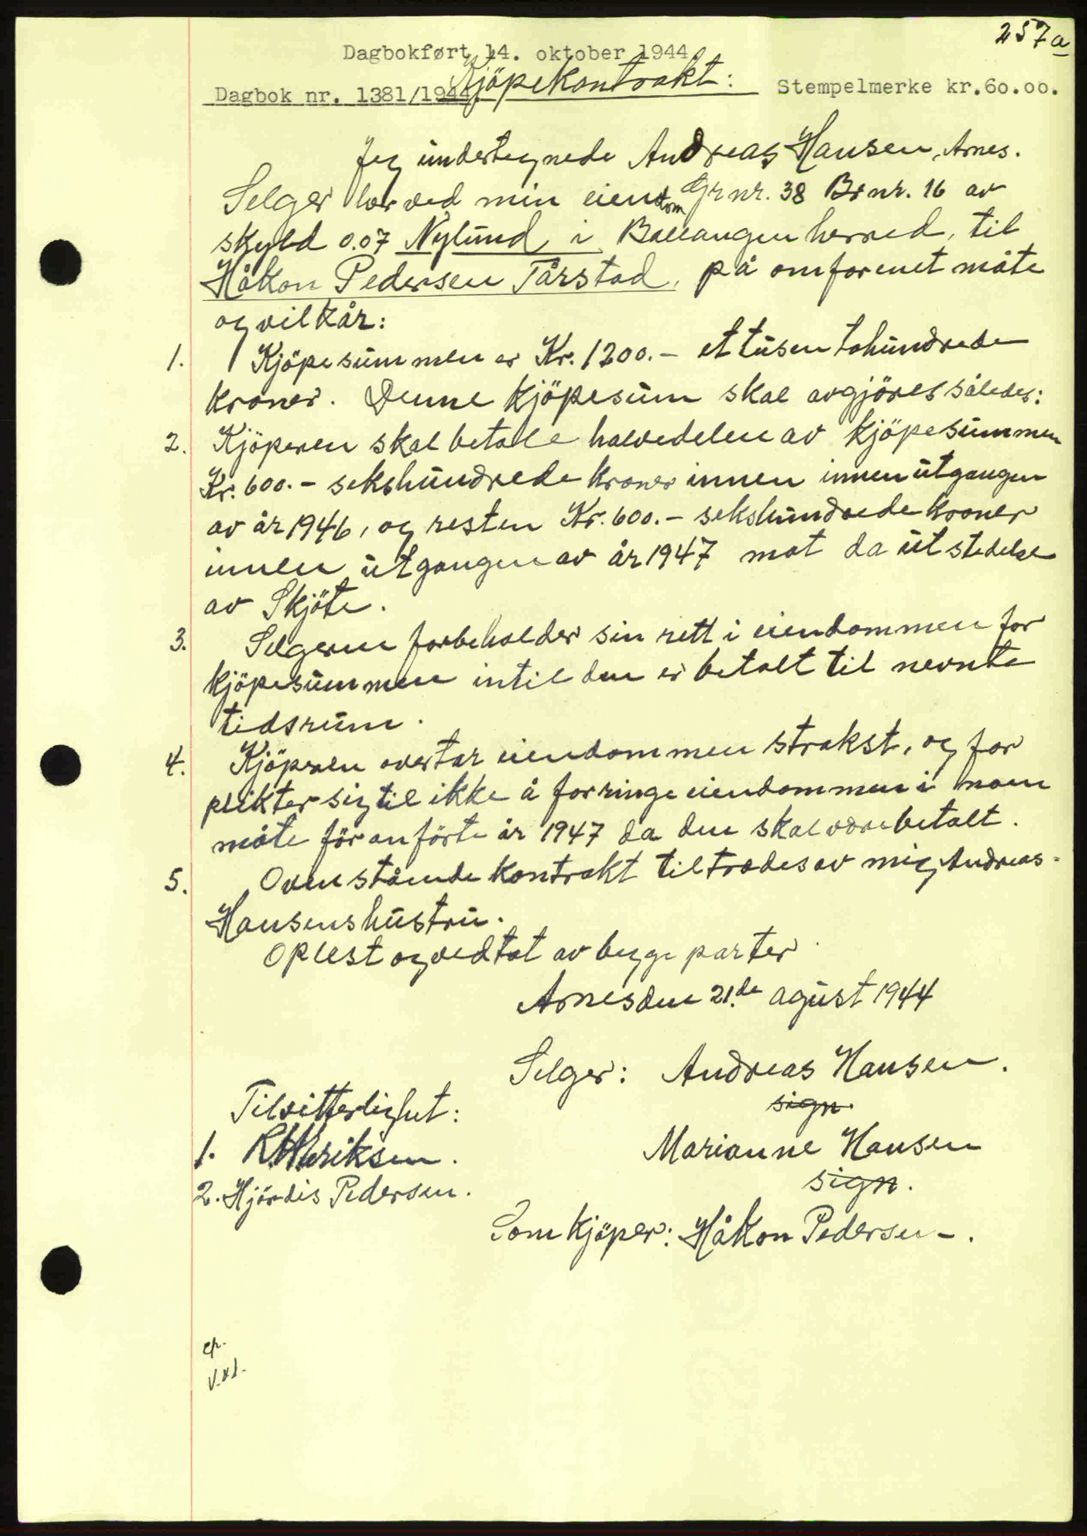 257a
Dagbokført 14. oktober 1944
Kjöpekontrakt:
Dagbok nr. 1381/1944
Stempelmerke kr.60.00.
Jeg undertegnede Andreas Hansen, Arnes.
Selger herved min eiendom Gr nr. 38 Br nr. 16 av
skyld 0.07 Nylund, i Ballangen herred, til
Håkon Pedersen Tårstad, på omforenet måte
og vilkår:
1. Kjöpesummen er Kr. 1200.- ettusen tohundrede
kroner. Denne kjöpesum skal avgjöres således:
2. Kjöperen skal betale halvedelen av kjöpesummen
Kr. 600.- sekshundrede kroner innen innen utgangen
av år 1946, og resten Kr. 600.- sekshundrede kroner
innen utgangen av år 1947 mot da utstedelse
av Skjöte.
3. Selgeren forbeholder sin rett i eiendommen for
kjöpesummen intil den er betalt til nevnte
tidsrum.
4. Kjöperen overtar eiendommen strakst, og for
plikter sig til ikke å forringe eiendommen i noen
måte för anförte år 1947 da den skal være betalt.
5. Ovenstående kontrakt tiltrædes av mig Andreas
Hansens hustru.
Oplest og vedtat av begge parter
Arnes den 21.de agust 1944
Selger: Andreas Hansen.
sign.
Tilvitterlighet:
1. R. Henriksen.
Marianne Hansen
sign.
2. Hjördis Pedersen.
Som kjöper: Håkon Pedersen.